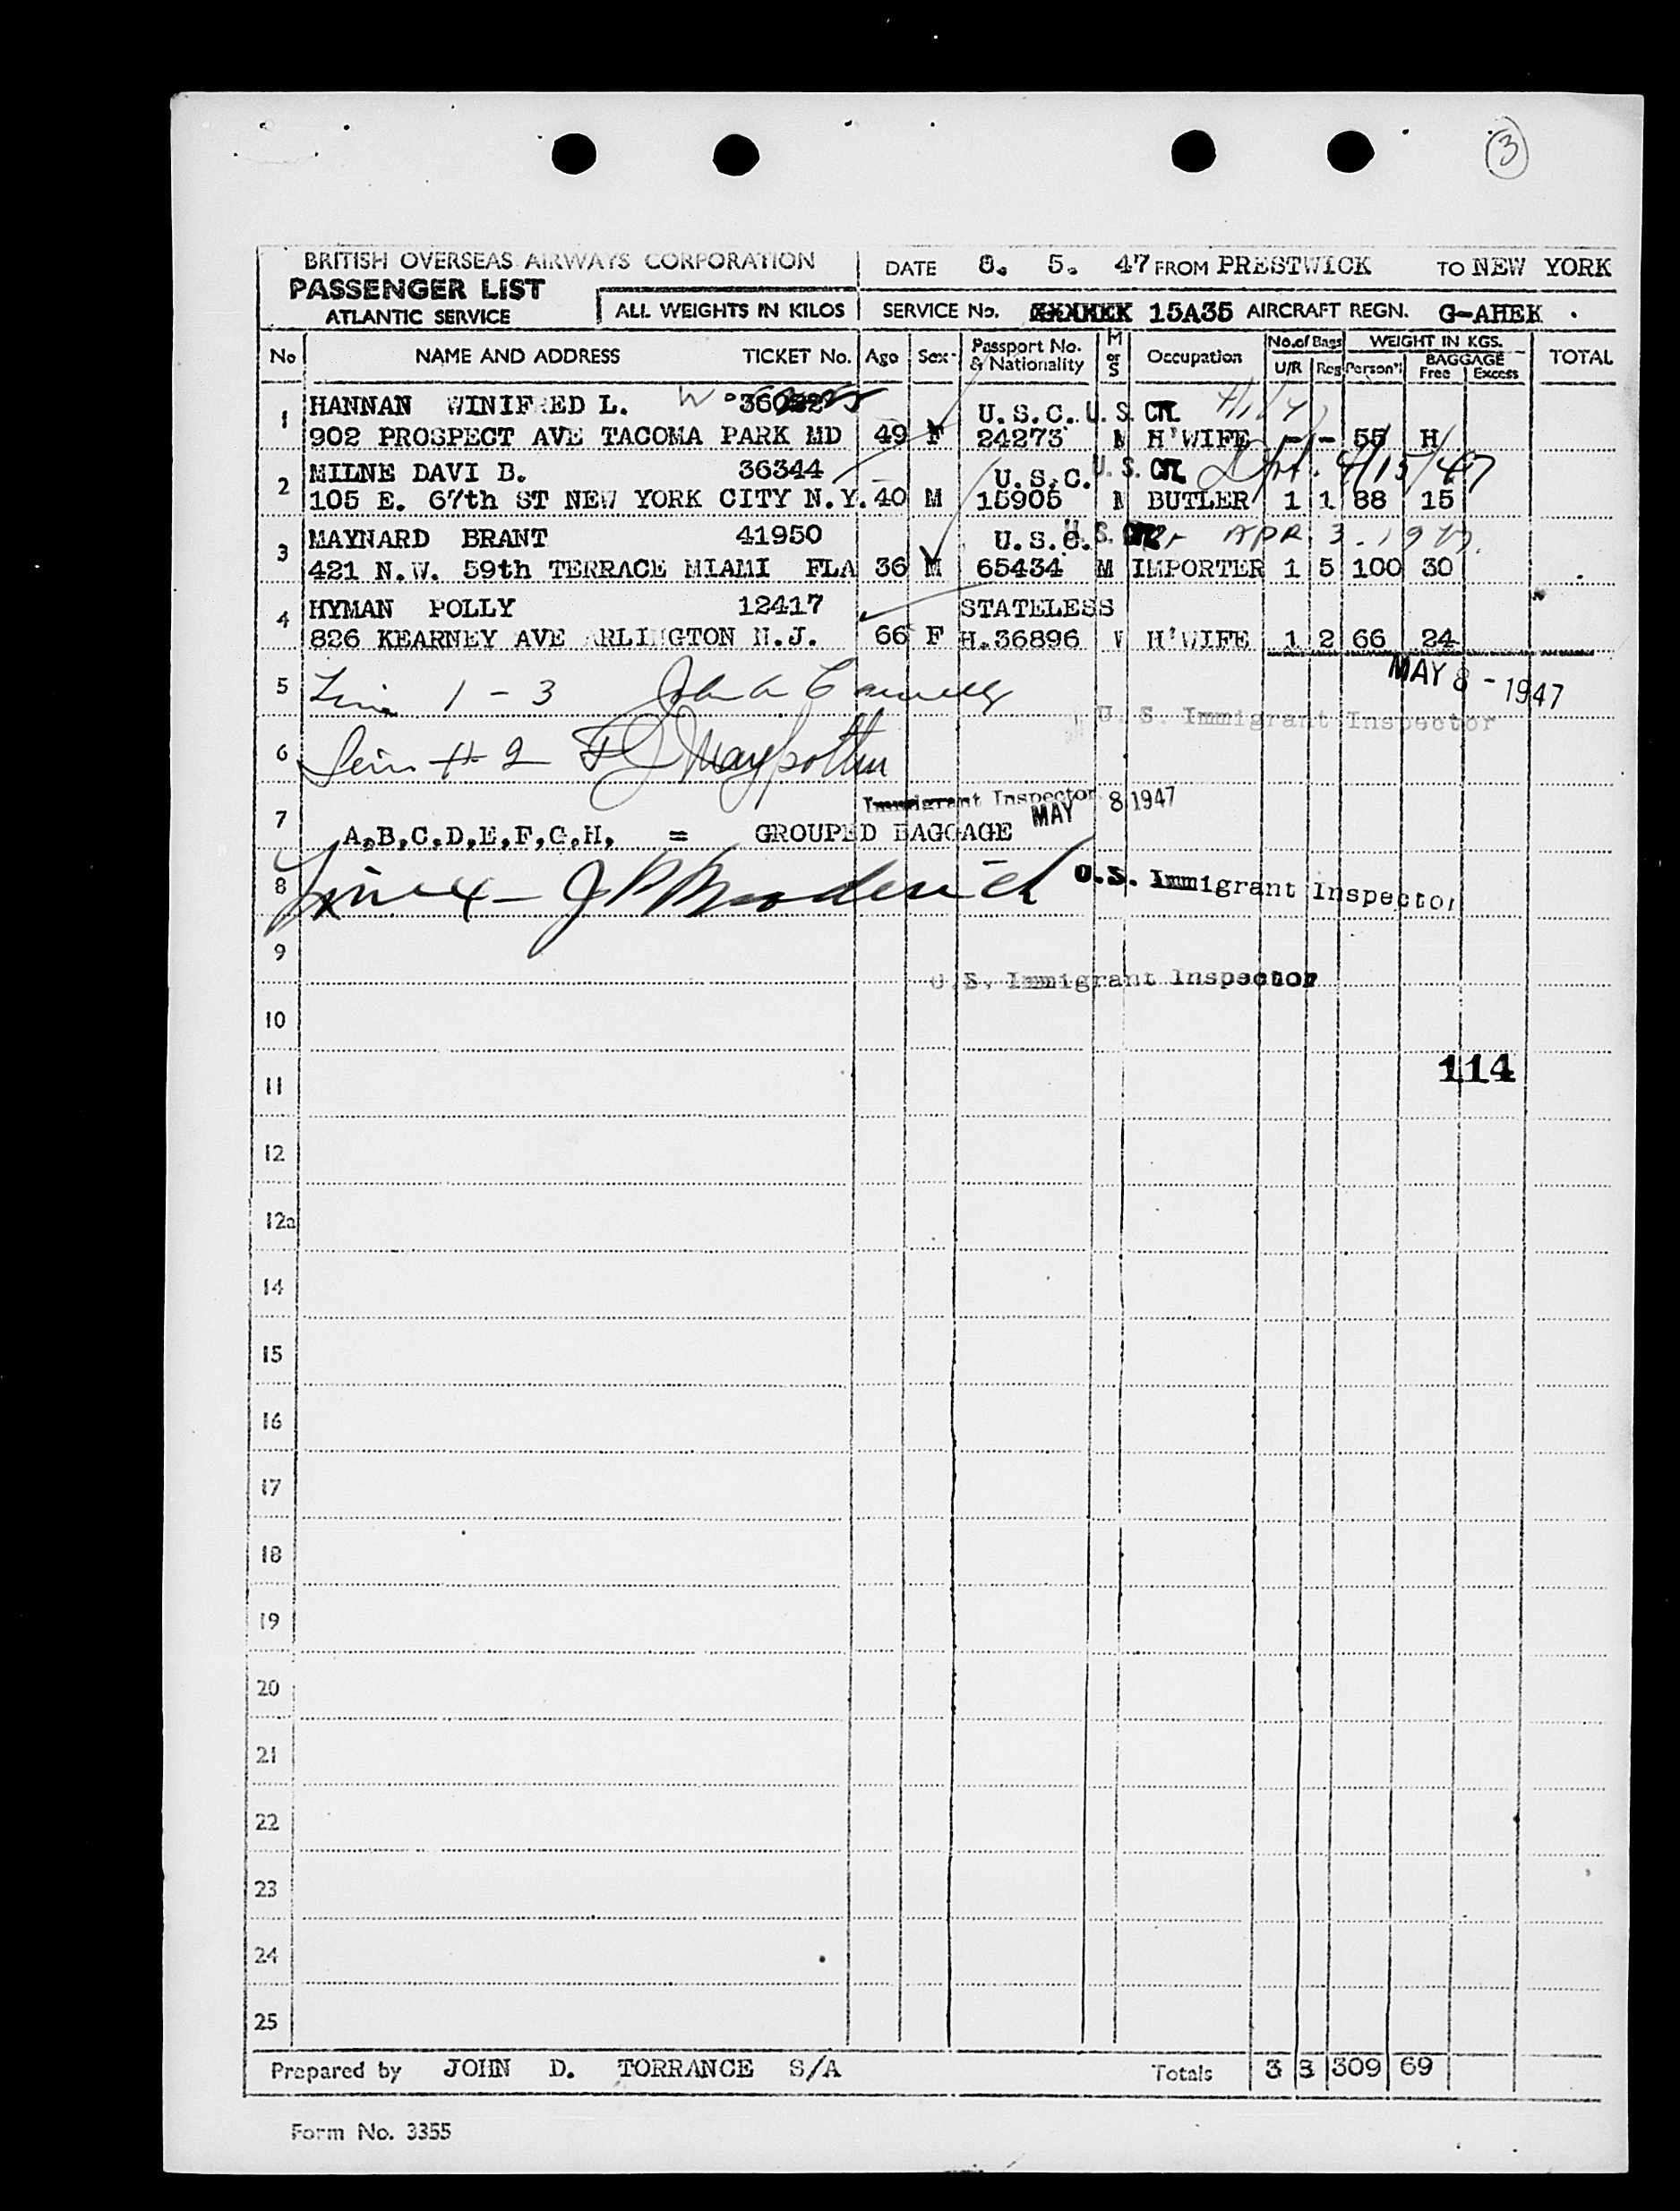 3
BRITISH OVERSEAS AIRWAYS CORPORATION
PASSENGER LIST
ATLANTIC SERVICE
ALL WEIGHTS IN KILOS
DATE 8. 5. 47 FROM PRESTWICK TO NEW YORK
SERVICE No. 15A35 AIRCRAFT REGN. G-AHEK .
No NAME AND ADDRESS TICKET No. Age Sex Passport No. & Nationality M or S Occupation No. of Bags U/R Reg WEIGHT IN KGS. Person'l BAGGAGE Free Excess TOTAL
1 HANNAN WINIFRED L. U.S.C. U.S. CIT.
902 PROSPECT AVE TACOMA PARK MD 49 F 24273 M H'WIFE - - 55 H
2 MILNE DAVI B. 36344 U.S.C. U.S. CIT. 4/15/47
105 E. 67th ST NEW YORK CITY N.Y. 40 M 15905 M BUTLER 1 1 88 15
3 MAYNARD BRANT 41950 U.S.C. U.S. APR. 3. 1947.
421 N.W. 59th TERRACE MIAMI FLA 36 M 65434 M IMPORTER 1 5 100 30
4 HYMAN POLLY 12417 STATELESS
826 KEARNEY AVE ARLINGTON N.J. 66 F H.36896 W H'WIFE 1 2 66 24
MAY 8 - 1947
5 Line 1 - 3 John
U. S. Immigrant Inspector
6 Line # 2
Immigrant Inspector
MAY 8 1947
7 A,B,C,D,E,F,G,H, = GROUPED BAGGAGE
8 Line 4 - J P Broderick U.S. Immigrant Inspector
9
U.S. Immigrant Inspector
10
114
11
12
12a
14
15
16
17
18
19
20
21
22
23
24
25
Prepared by JOHN D. TORRANCE S/A Totals 3 8 309 69
Form No. 3355